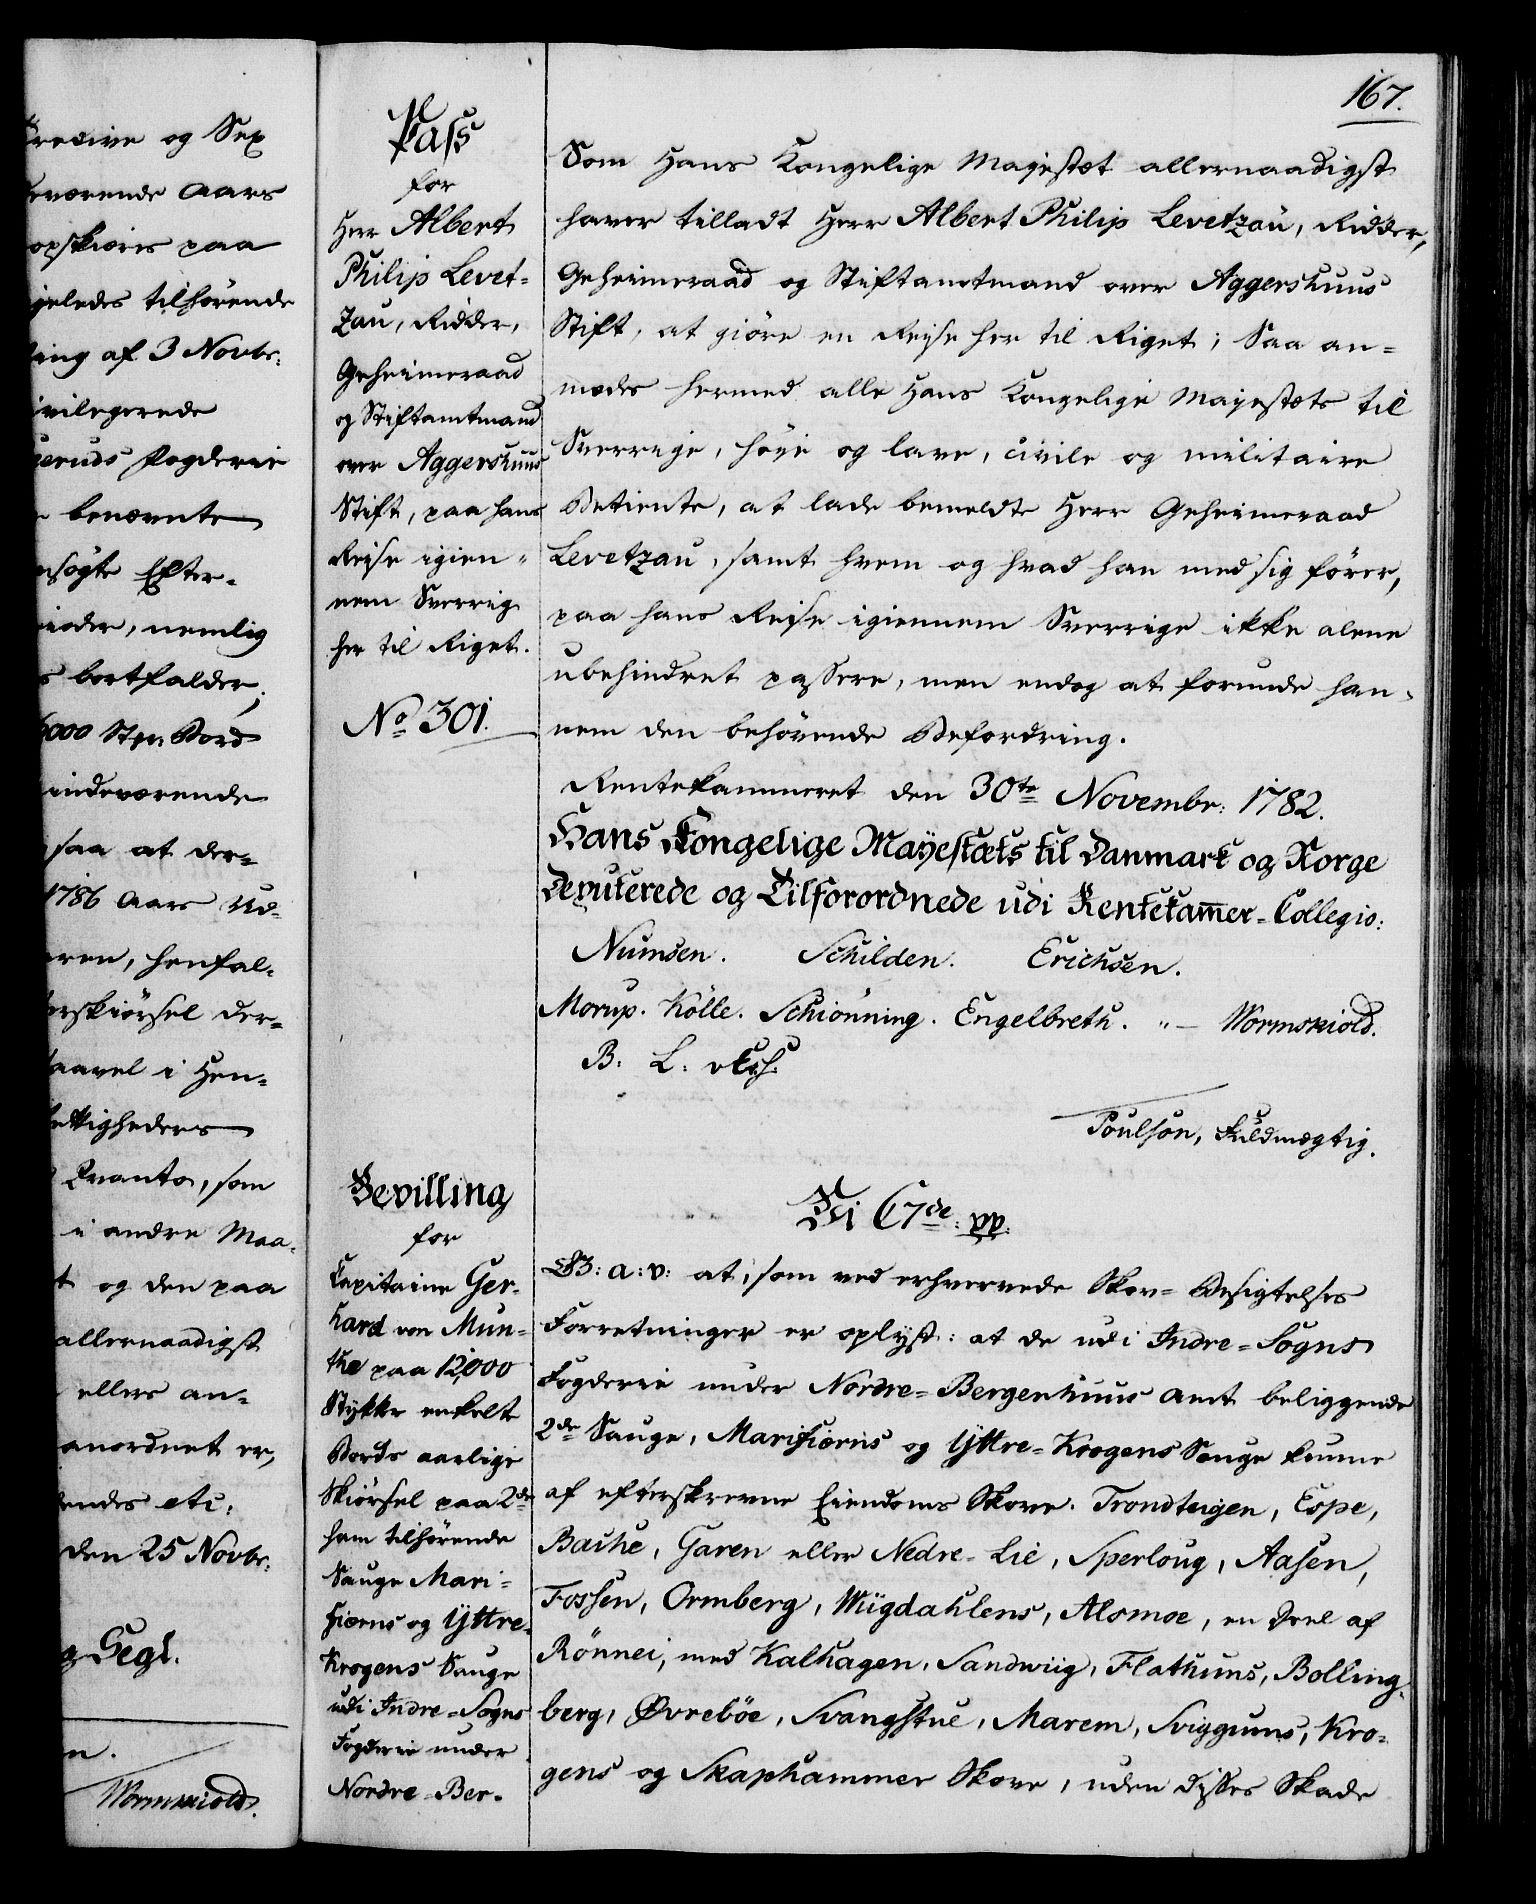 167.
recive og Sex
værende Aars
opskieres paa
geledes tilhørende
ing af 3 Novbr:
ivilegerede
geruds Fogderie
benævnte
nsøgte Efter-
rinder, nemlig
s bortfalder;
6000 Str: Bord
indeværende
saa at der-
1786 Aars Ud-
ren, henfal-
erskiørsel der-
aavel i Hen-
ettigheders
Qvanto, som
i andre Maa-
t og den paa
allernaadigst
ellers an-
anordnet er,
endes etc:
den 25 Novbr.
g Segl.
n.
Wormskiold.
Pass
for
Herr Albert
Philip Levet-
zau, Ridder,
Geheimeraad
og Stiftamtmand
over Aggershuus
Stift, paa hans
Reise igien-
nem Sverrig
her til Riget.
No 301.
Som Hans Kongelige Majestæt allernaadigst
haver tilladt Herr Albert Philip Levetzau, Ridder,
Geheimeraad og Stiftamtmand over Aggershuus
Stift, at giöre en Reise her til Riget; Saa an-
modes hermed alle Hans Kongelige Mayestæts til
Sverrige, höye og lave, civile og militaire
Betiente, at lade bemeldte Herr Geheimeraad
Levetzau, samt hvem og hvad han med sig förer,
paa hans Reise igiennem Sverrige ikke alene
ubehindret passere, men endog at forunde han-
nem den behövende Befordring.
Rentekammeret den 30te Novembr: 1782.
Hans Kongelige Mayestæts til Danmark og Norge
Deputerede og Tilforordnede udi Rentekammer-Collegio:
Numsen. Schilden. Erichsen.
Morup. Kölle. Schiönning. Engelbreth. "— Wormskiold.
B. L.
Poulson, Fuldmægtig.
Bevilling
for
Capitaine Ger-
hard von Mun-
the paa 12,000
Stykker enkelte
Bords aarlige
Skiörsel paa 2de
ham tilhørende
Sauge Mari-
fiærns og Yttre-
Krogens Sauge
udi Indre-Sogns
Fogderie under
Nordre-Ber-
Vi C7de: pp:
G: a: v: at, som ved erhvervede Skov-Besigtelses
Forretninger er oplyst: at de udi Indre-Sogns
Fogderie under Nordre-Bergenhuus Amt beliggende
2de Sauge, Marifiærns og Yttre-Krogens Sauge kunne
af efterskrevne Eiendoms Skove. Trondteigen, Espe,
Bashe, Garen eller Nedre-Lie, Sperloug, Aasen,
Fossen, Ormberg, Müigdahlens, Alsmoe, en Deel af
Rönnei, med Kalhagen, Sandwiig, Flathuns, Bolling-
berg, Øvrebøe, Svangstue, Marem, Sviggums, Kro-
gens og Skaphammer Skove, uden disses Skade